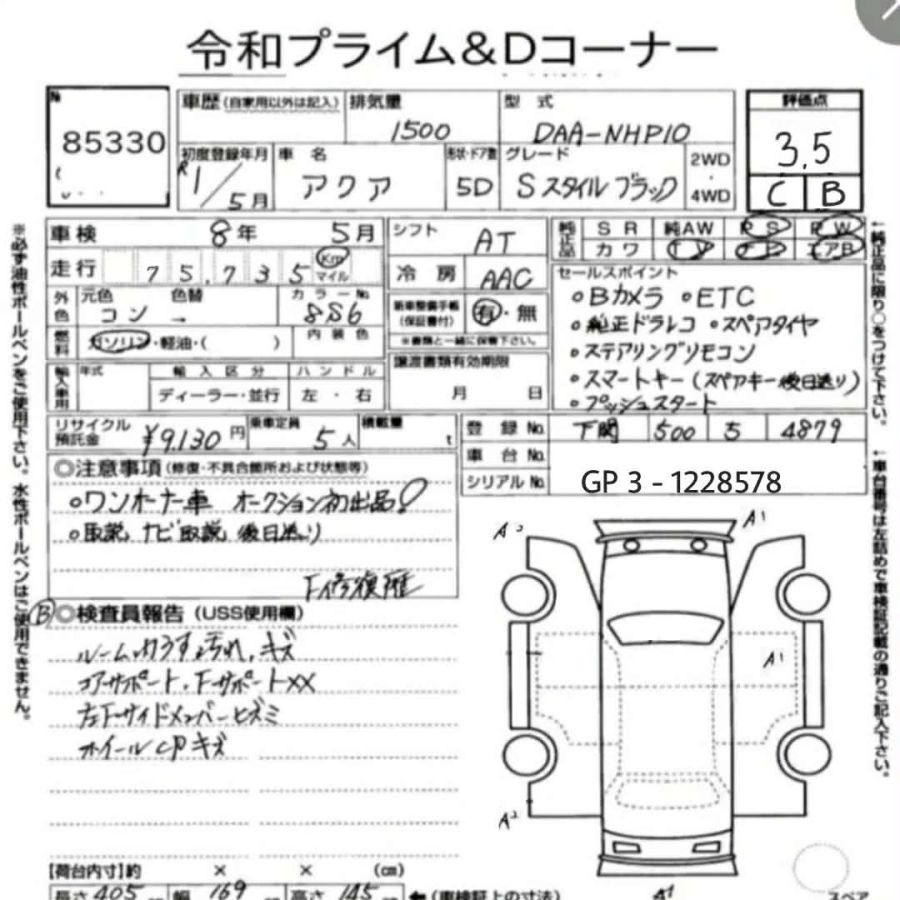 令和プライム&Dコーナー
№ 85330
車歴 (自家用以外は記入) 排気量 1500 型式 DAA-NHP10
評価点 3.5
C B
初度登録年月 R1/5月 車名 アクア 形状・ドア数 5D グレード Sスタイルブラック 2WD・4WD
車検 8年 5月
シフト AT
純正品 SR 純AW PS PW
カワ TV ナビ エアB
走行 75,735 Km マイル
冷房 AAC
外色 元色 コン 色替 → カラーNo. 8S6
新車整備手帳 (保証書付) 有・無
※書類と一緒に保管下さい。
燃料 ガソリン・軽油・( ) 内装色
輸入車用 年式 輸入区分 ディーラー・並行 ハンドル 左・右
譲渡書類有効期限 月 日
セールスポイント
○Bカメラ ○ETC
○純正ドラレコ ○スペアタイヤ
○ステアリングリモコン
○スマートキー(スペアキー後日送り)
○プッシュスタート
リサイクル預託金 ¥9130円 乗車定員 5人 積載量 t
登録No. 下関 500 5 4879
車台No.
シリアルNo. GP 3 - 1228578
◎注意事項 (修復・不具合箇所および状態等)
○ワンオーナー車 オークション初出品!
○取説、ナビ取説 後日送り
F修復歴
B ◎検査員報告 (USS使用欄)
ルーム内うす汚れ、キズ
コアサポート、Fサポート××
左Fサイドメンバーヒズミ
ホイールCPキズ
A2 A1
A1
A2
A1
スペア
【荷台内寸】約 × × (cm)
長さ 405 幅 169 高さ 145 ←(車検証上の寸法)
※必ず油性ボールペンをご使用下さい。水性ボールペンはご使用できません。
←純正品に限り○をつけて下さい。
←車台番号は左詰めで車検証記載の通りご記入下さい。